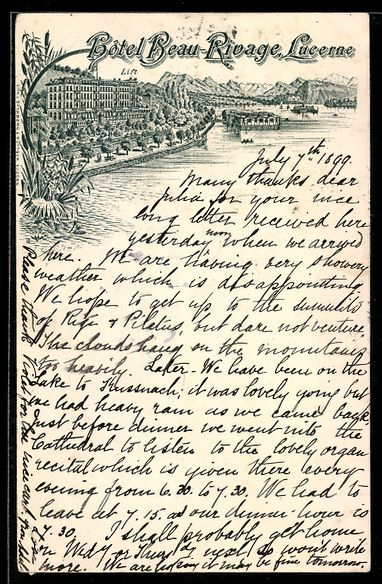 Hôtel Beau-Rivage, Lucerne
Lift
July 7th 1899.
Many thanks dear
Julia for your nice
long letter received here
yesterday noon when we arrived
here. We are having very showery
weather which is disappointing
We hope to get up to the summits
of Rigi & Pilatus, but dare not venture
The clouds hang on the mountains
too heavily. Later - We have been on the
Lake to Kussnach; it was lovely going but
we had heavy rain as we came back.
Just before dinner we went into the
Cathedral to listen to the lovely organ
recital which is given there every
evening from 6.30 to 7.30. We had to
leave at 7.15. as our dinner-hour is
7.30. I shall probably get home
on Wedy or Thursdy next so wont write
more. We are hoping it may be fine tomorrow.
Please thank for her nice